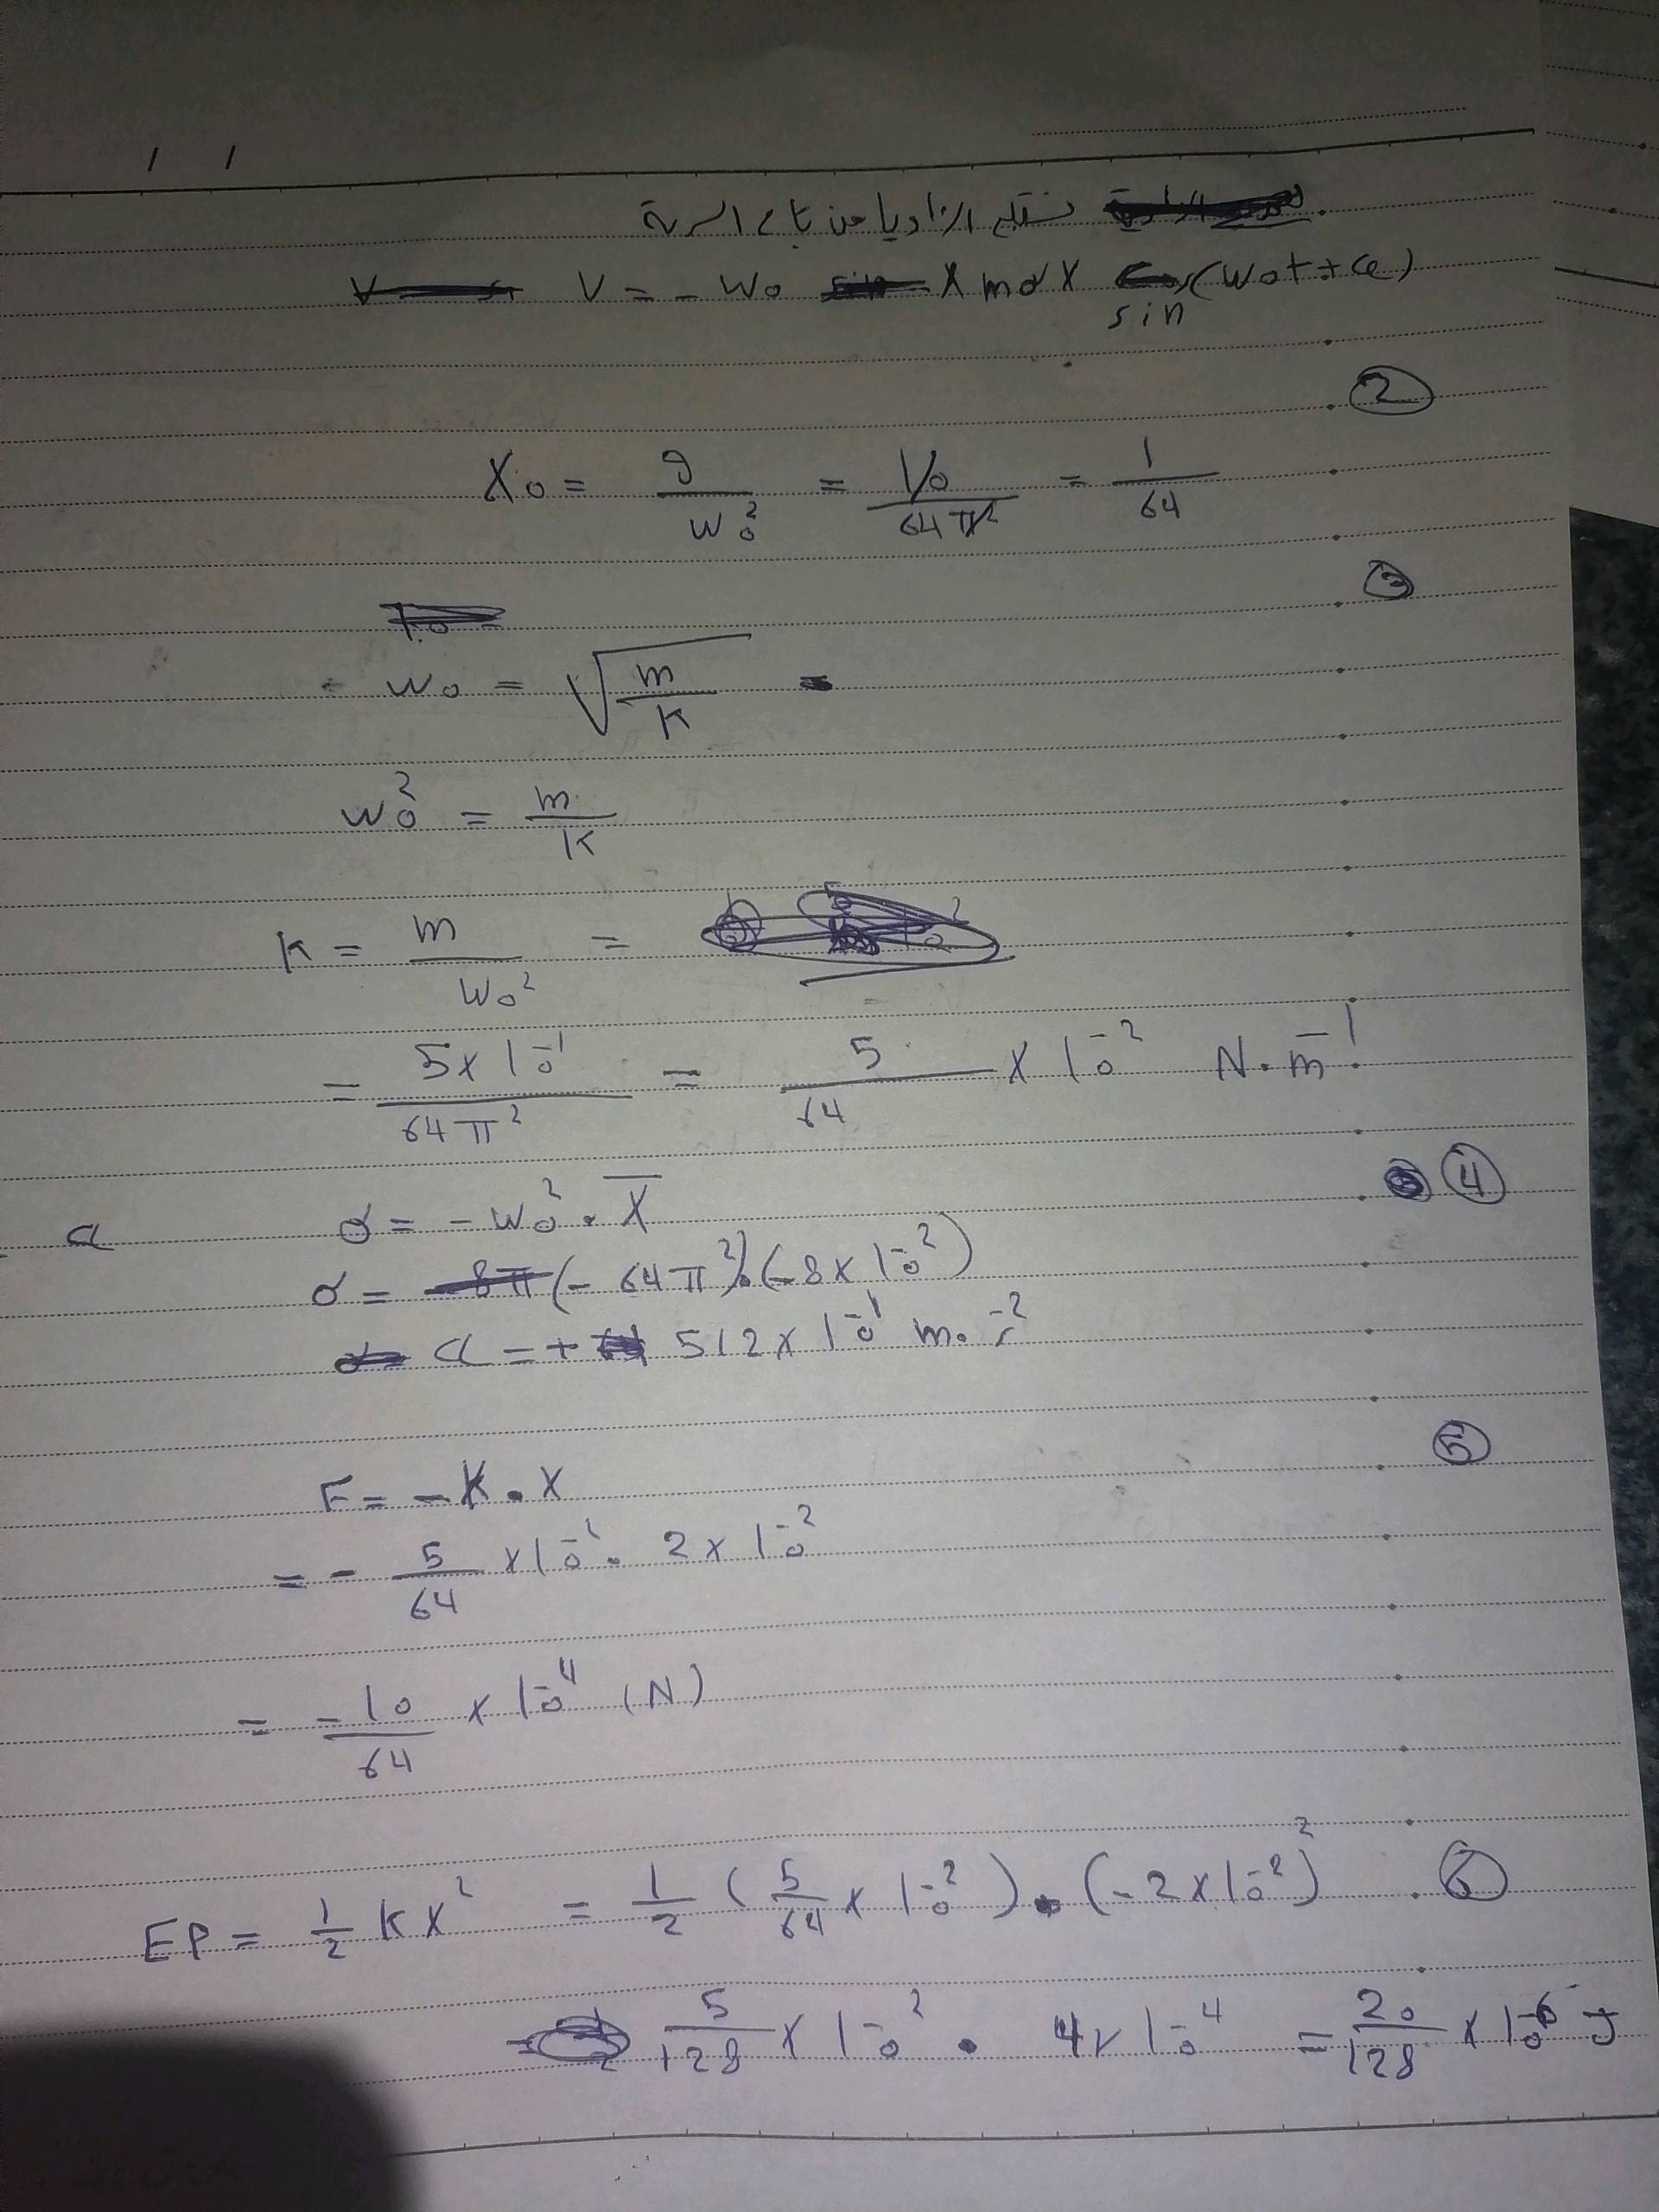 / /
نستنتج الزاويا من تابع السرعة
V = - W₀ X max sin (W₀t + φ)
②
X₀ = g / W₀² = 10 / 64π² = 1 / 64
③
W₀ = √(m / K)
W₀² = m / K
K = m / W₀² =
= 5 × 10⁻¹ / 64π² = 5 / 64 × 10⁻² N.m⁻¹
④
a a = - W₀² . X̄
a = (- 64π²).(-8 × 10⁻²)
a = + 512 × 10⁻¹ m.s⁻²
⑤
F = - K . X
= - 5 / 64 × 10⁻² . 2 × 10⁻²
= - 10 / 64 × 10⁻⁴ (N)
⑥
EP = 1/2 K X² = 1/2 (5/64 × 10⁻²) . (-2 × 10⁻²)²
= 5 / 128 × 10⁻² . 4 × 10⁻⁴ = 20 / 128 × 10⁻⁶ J